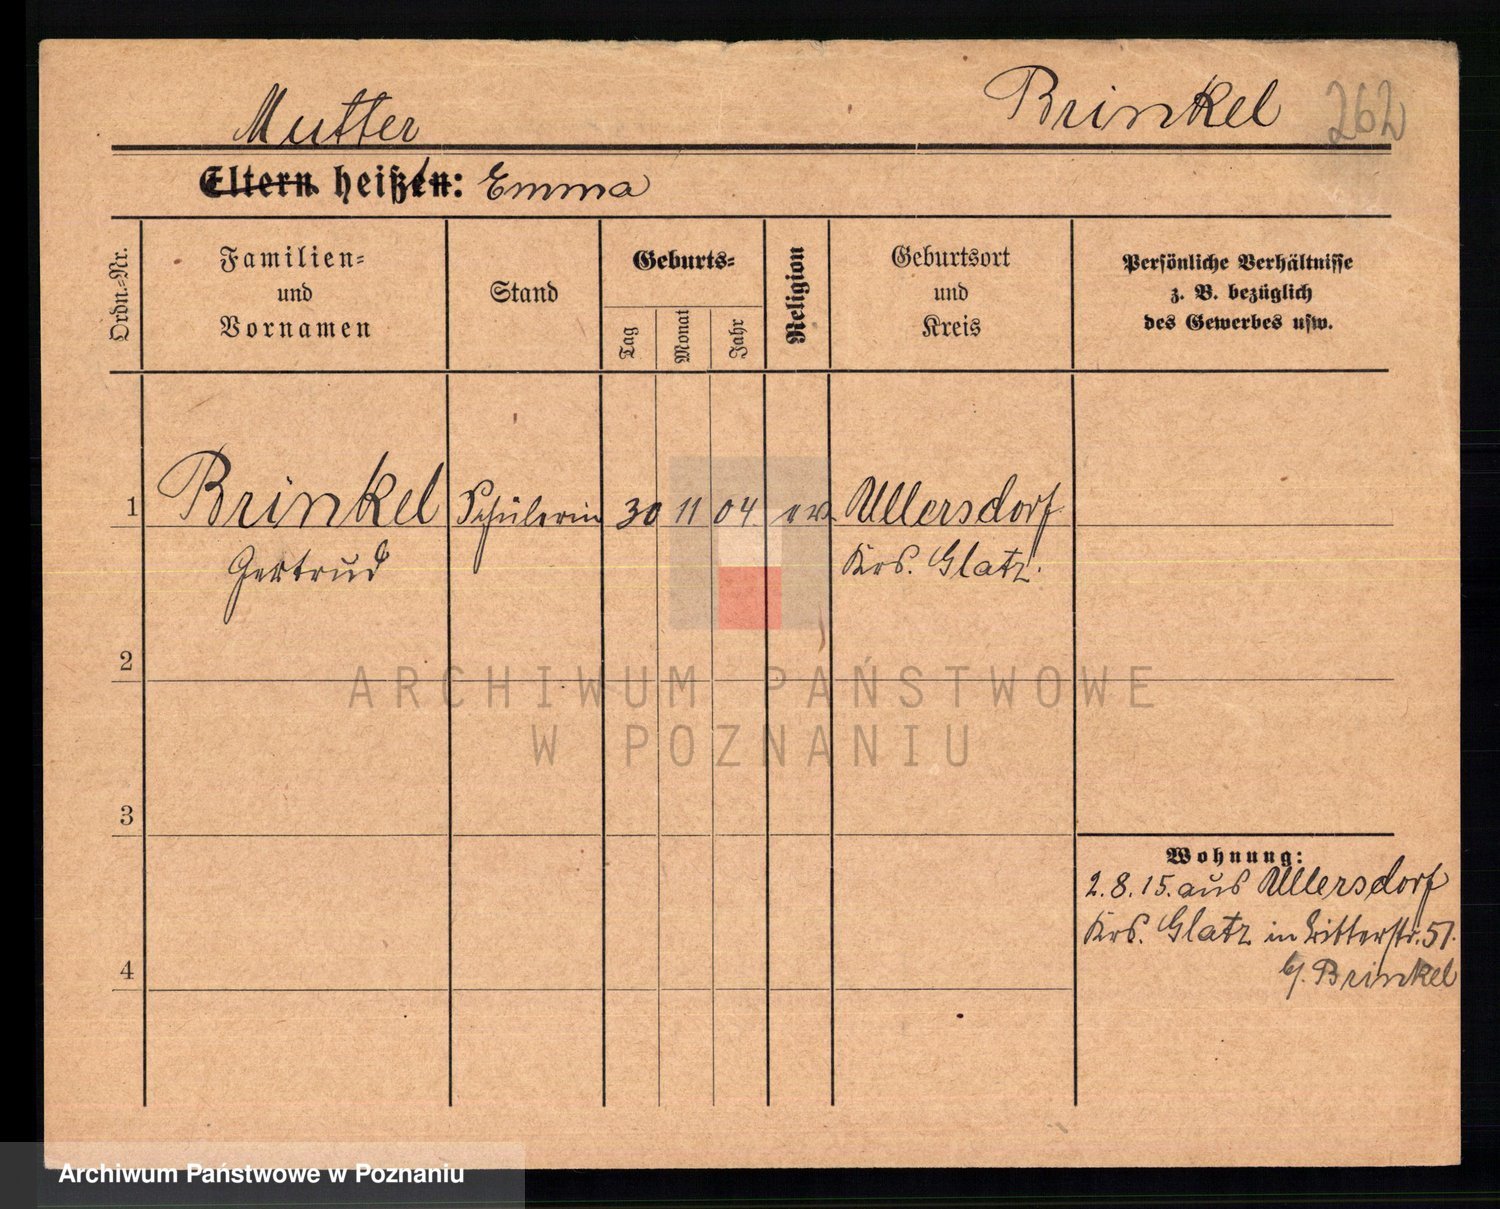 Mutter
Brinkel
262
Eltern heißen: Emma
Ordn.=Nr.
Familien=
und
Vornamen
Stand
Geburts=
Tag
Monat
Jahr
Religion
Geburtsort
und
Kreis
Persönliche Verhältnisse
z. B. bezüglich
des Gewerbes usw.
1
Brinkel
Schülerin
30
11
04
ev.
Ullersdorf
Gertrud
Krs. Glatz.
2
ARCHIWUM PAŃSTWOWE
W POZNANIU
3
Wohnung:
2.8.15. aus Ullersdorf
Krs. Glatz in Ritterstr. 51.
b/. Brinkel
4
Archiwum Państwowe w Poznaniu